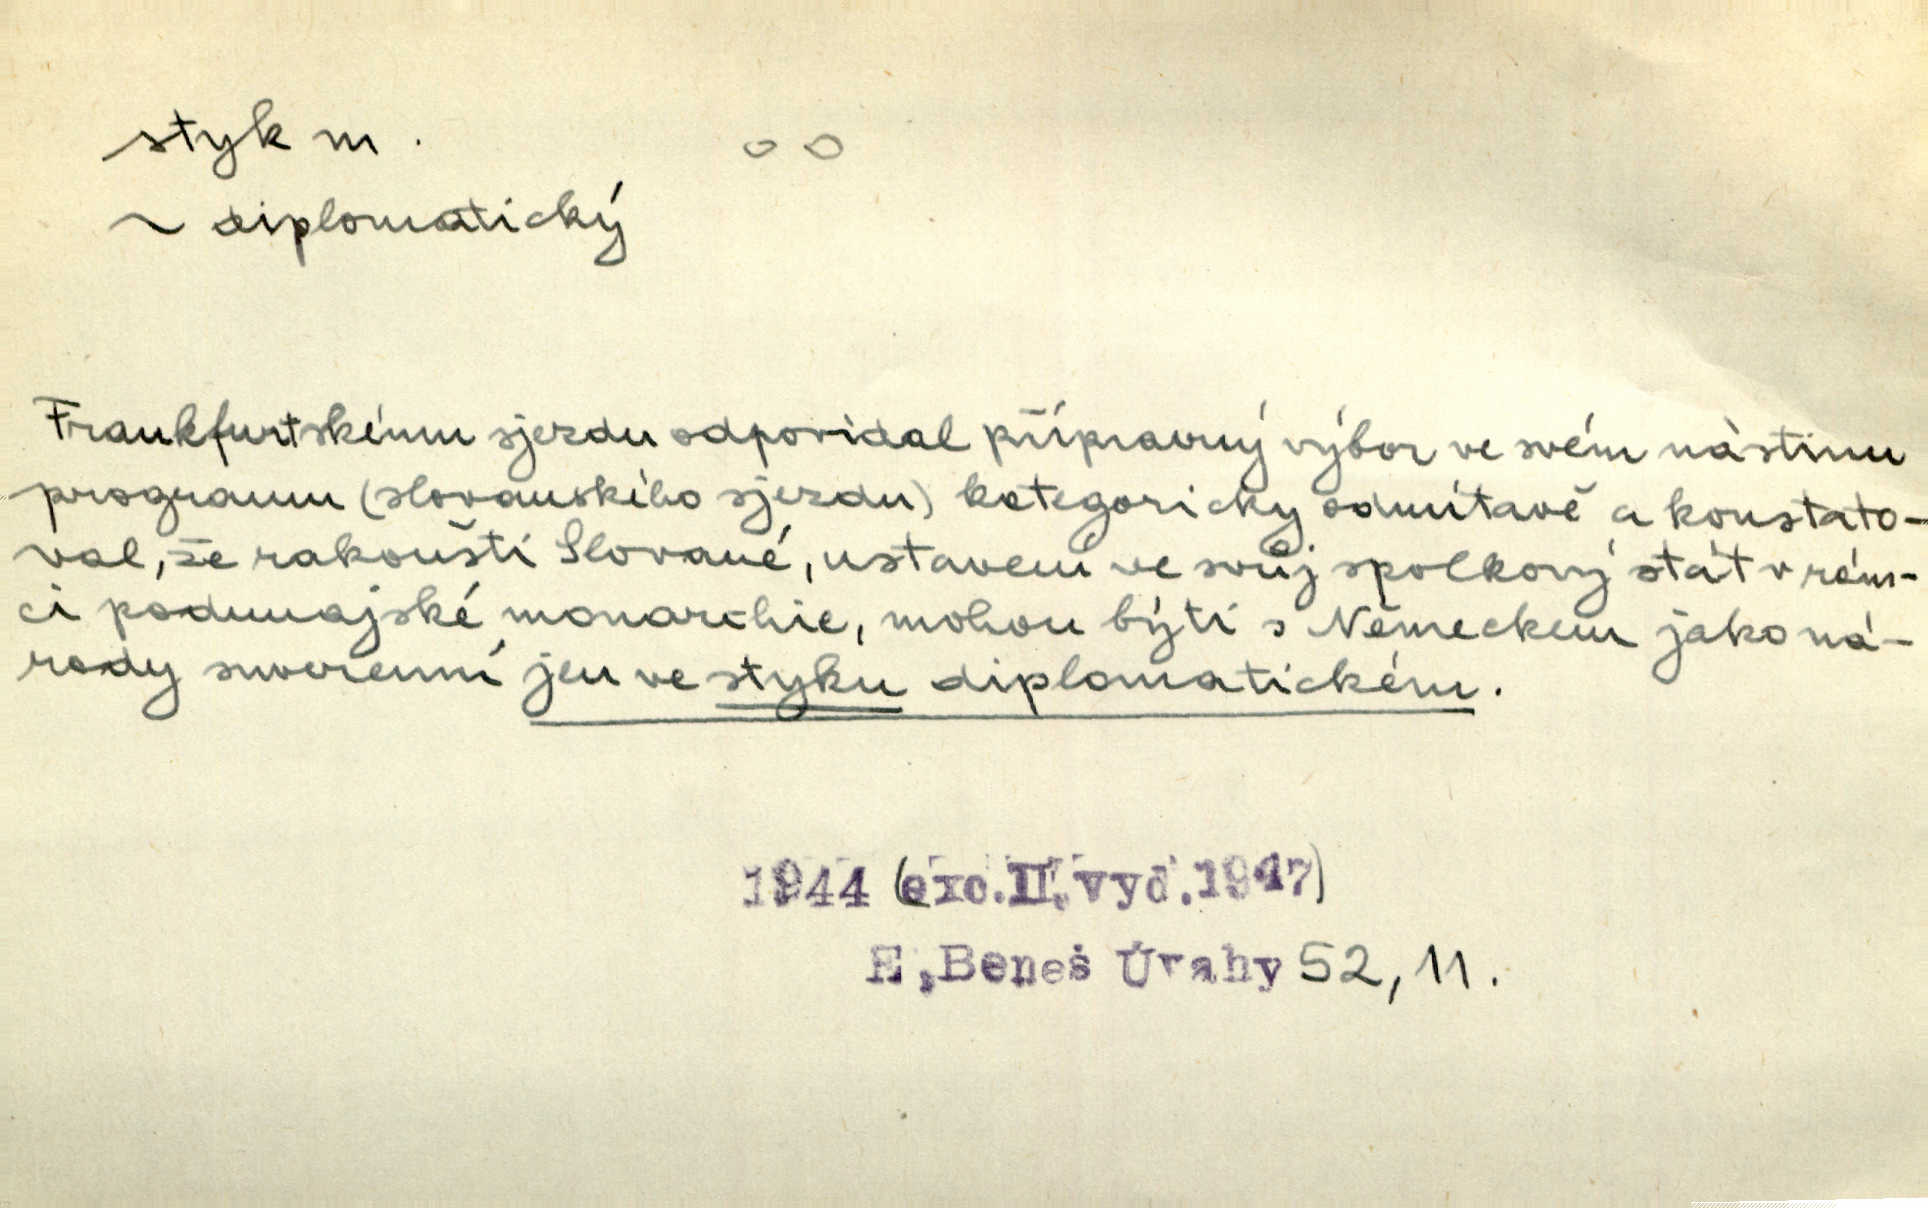 styk m.
~ diplomatický
Frankfurtskému sjezdu odpovídal přípravný výbor ve svém nástinu
programu (slovanského sjezdu) kategoricky odmítavě a konstato-
val, že rakouští Slované, ustavení ve svůj spolkový stát v rám-
ci podunajské monarchie, mohou býti s Německem jako ná-
rody suverenní jen ve styku diplomatickém.
1944 (exc.II.vyd.1947)
E.Beneš Úvahy 52, 11.